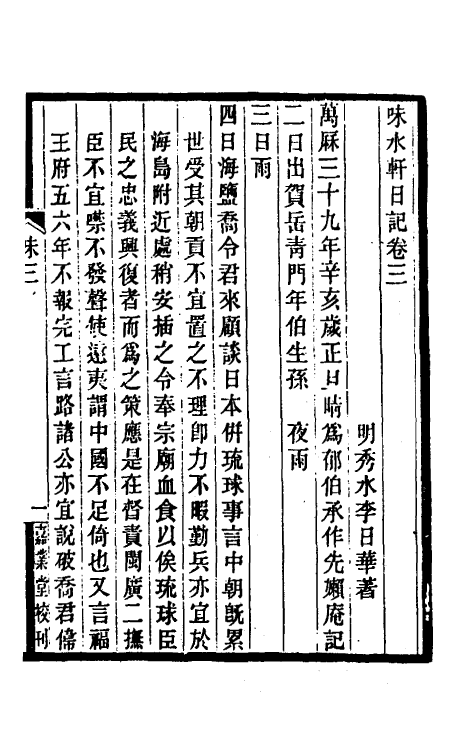 味水軒日記卷三
明秀水李日華著
萬厤三十九年辛亥歲正旦晴爲郁伯承作先嬾庵記
二日出賀岳靑門年伯生孫　夜雨
三日雨
四日海鹽喬令君來顧談日本併琉球事言中朝旣累
世受其朝貢不宜置之不理卽力不暇勤兵亦宜於
海島附近處稍安插之令奉宗廟血食以俟琉球臣
民之忠義興復者而爲之策應是在督責閩廣二撫
臣不宜噤不發聲使遠夷謂中國不足倚也又言福
王府五六年不報完工言路諸公亦宜說破喬君偹
味三
一
嘉業堂校刊